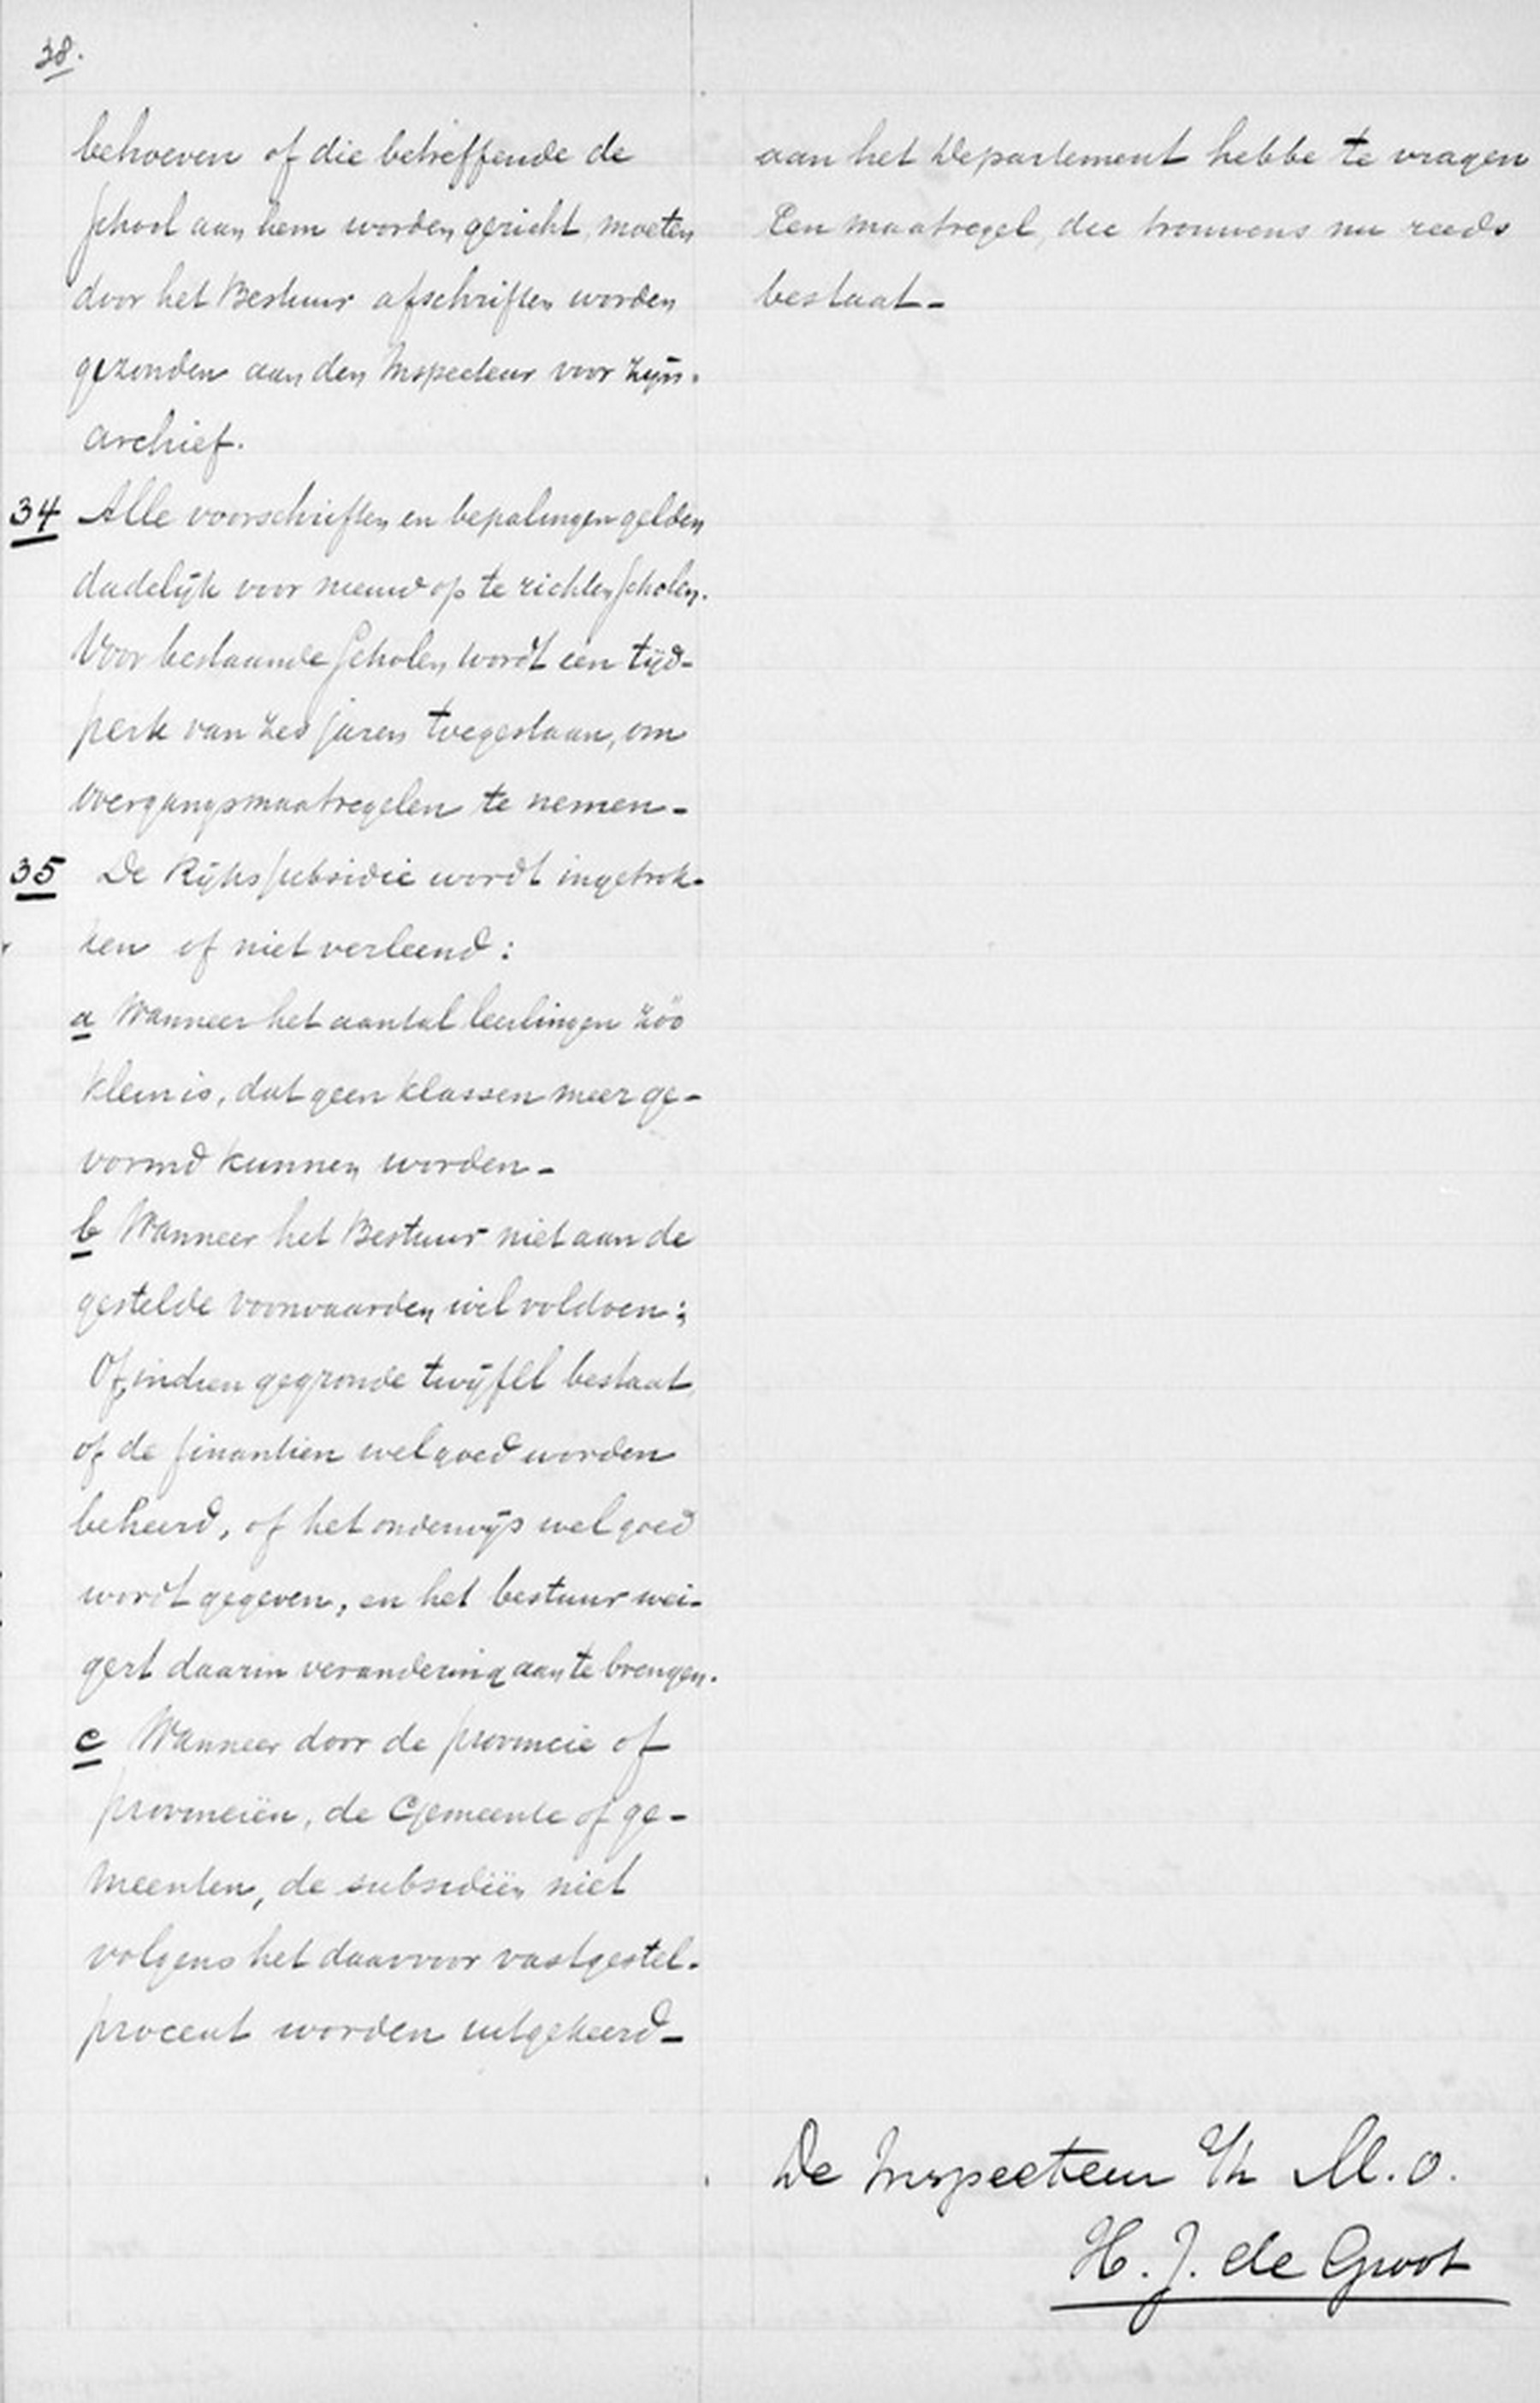 38.
behoeven of die betreffende de
school aan hem worden gericht, moeten
door het Bestuur afschriften worden
gezonden aan den Inspecteur voor zijn
archief.
34 Alle voorschriften en bepalingen gelden
dadelijk voor nieuw op te richten scholen.
Voor bestaande scholen wordt een tijd-
perk van zes jaren toegestaan, om
overgangsmaatregelen te nemen-
35 De Rijkssubsidie wordt ingetrok-
ken of niet verleend:
a Wanneer het aantal leerlingen zóó
klein is, dat geen klassen meer ge-
vormd kunnen worden-
b Wanneer het Bestuur niet aan de
gestelde voorwaarden wil voldoen;
Of, indien gegronde twijfel bestaat,
of de finantien wel goed worden
beheerd, of het onderwijs wel goed
wordt gegeven, en het bestuur wei-
gert daarin verandering aan te brengen.
c Wanneer door de provincie of
provinciën, de Gemeente of ge-
meenten, de subsidiën niet
volgens het daarvoor vastgestel-
procent worden uitgekeerd-
aan het Departement hebbe te vragen
Een maatregel, die trouwens nu reeds
bestaat-
De Inspecteur M.O.
H. J. de Groot